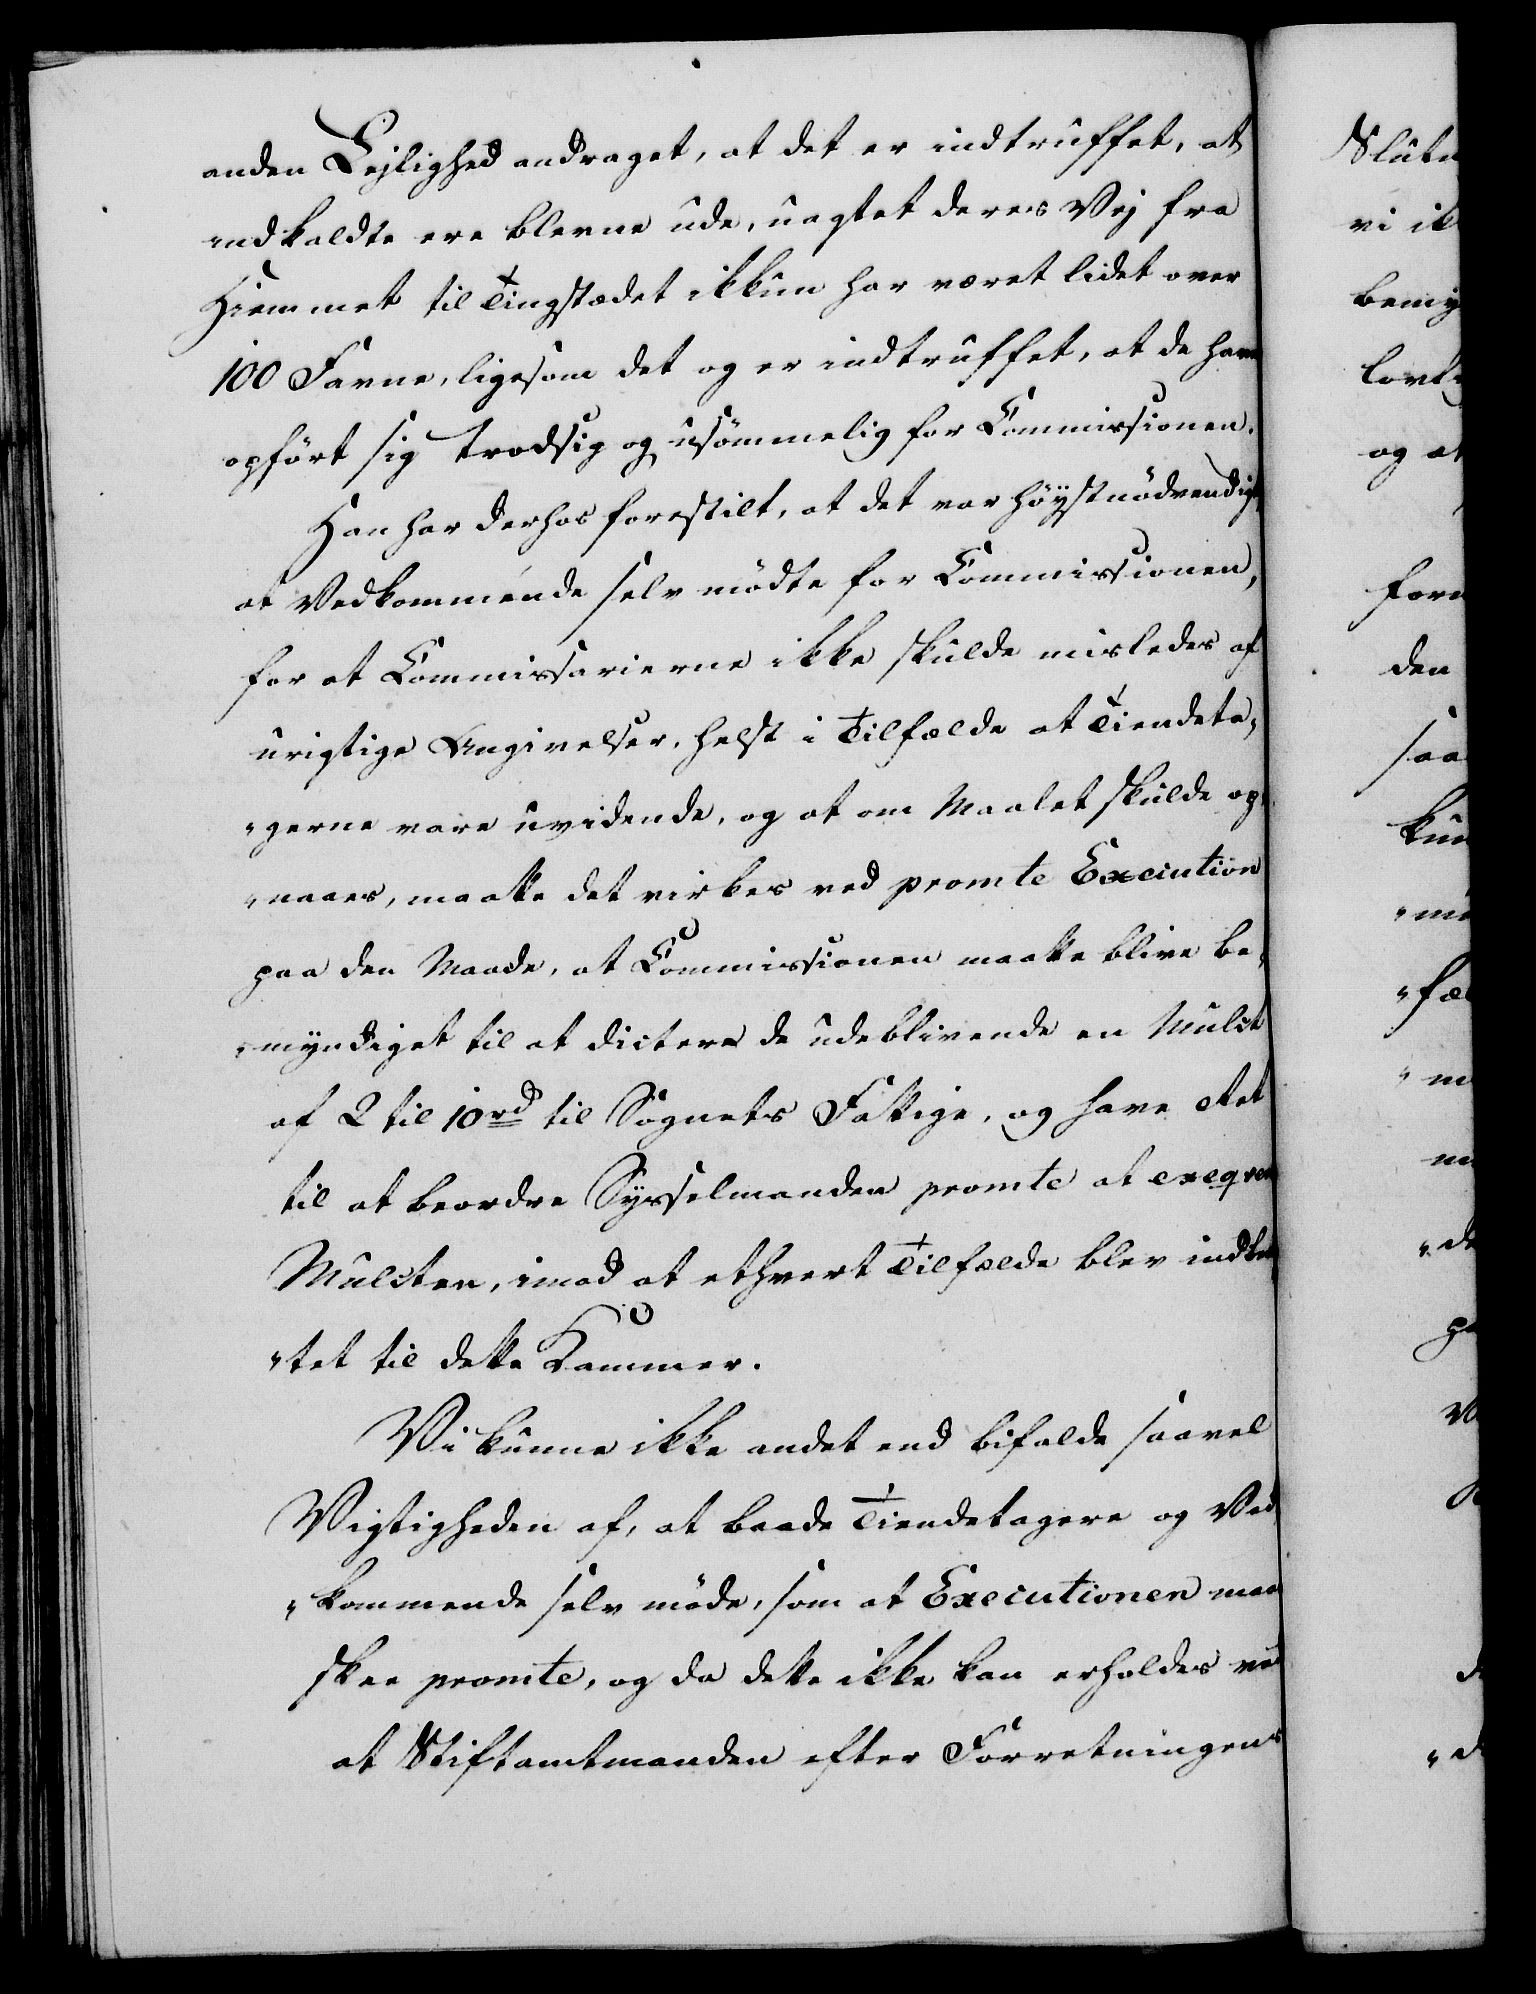 anden Lejlighed andraget, at det er indtruffet, at
indkaldte ere blevne ude, uagtet deres Vej fra
Hiemmet til Tingstædet ikkun har været lidet over
100 Favne, ligesom det og er indtruffet, at de have
opført sig trodsig og usømmelig for Commissionen.
Han har derhos forestilt, at det var høystnødvendigt,
at Vedkommende selv mødte for Commissionen,
for at Commissarierne ikke skulde misledes af
urigtige Angivelser, helst i Tilfælde at Tiendeta„
„gerne vare uvidende, og at om Maalet skulde op„
„naaes, maatte det virkes ved promte Execution
paa den Maade, at Commissionen maatte blive be„
„myndiget til at dictere de udeblivende en Mulct
af 2 til 10 rd til Sognets Fattige, og have Ret
til at beordre Sysselmanden promte at exeqvere
Mulcten, imod at ethvert Tilfælde blev indberet„
„tet til dette Kammer.
Vi kunne ikke andet end bifalde saavel
Vigtigheden af, at baade Tiendetagere og Ved„
„kommende selv møde, som at Executionen maa
skee promte, og da dette ikke kan erholdes ved
at Stiftamtmanden efter Forretningens
Slutn
vi ik
bemy
og at
den
saa
kun